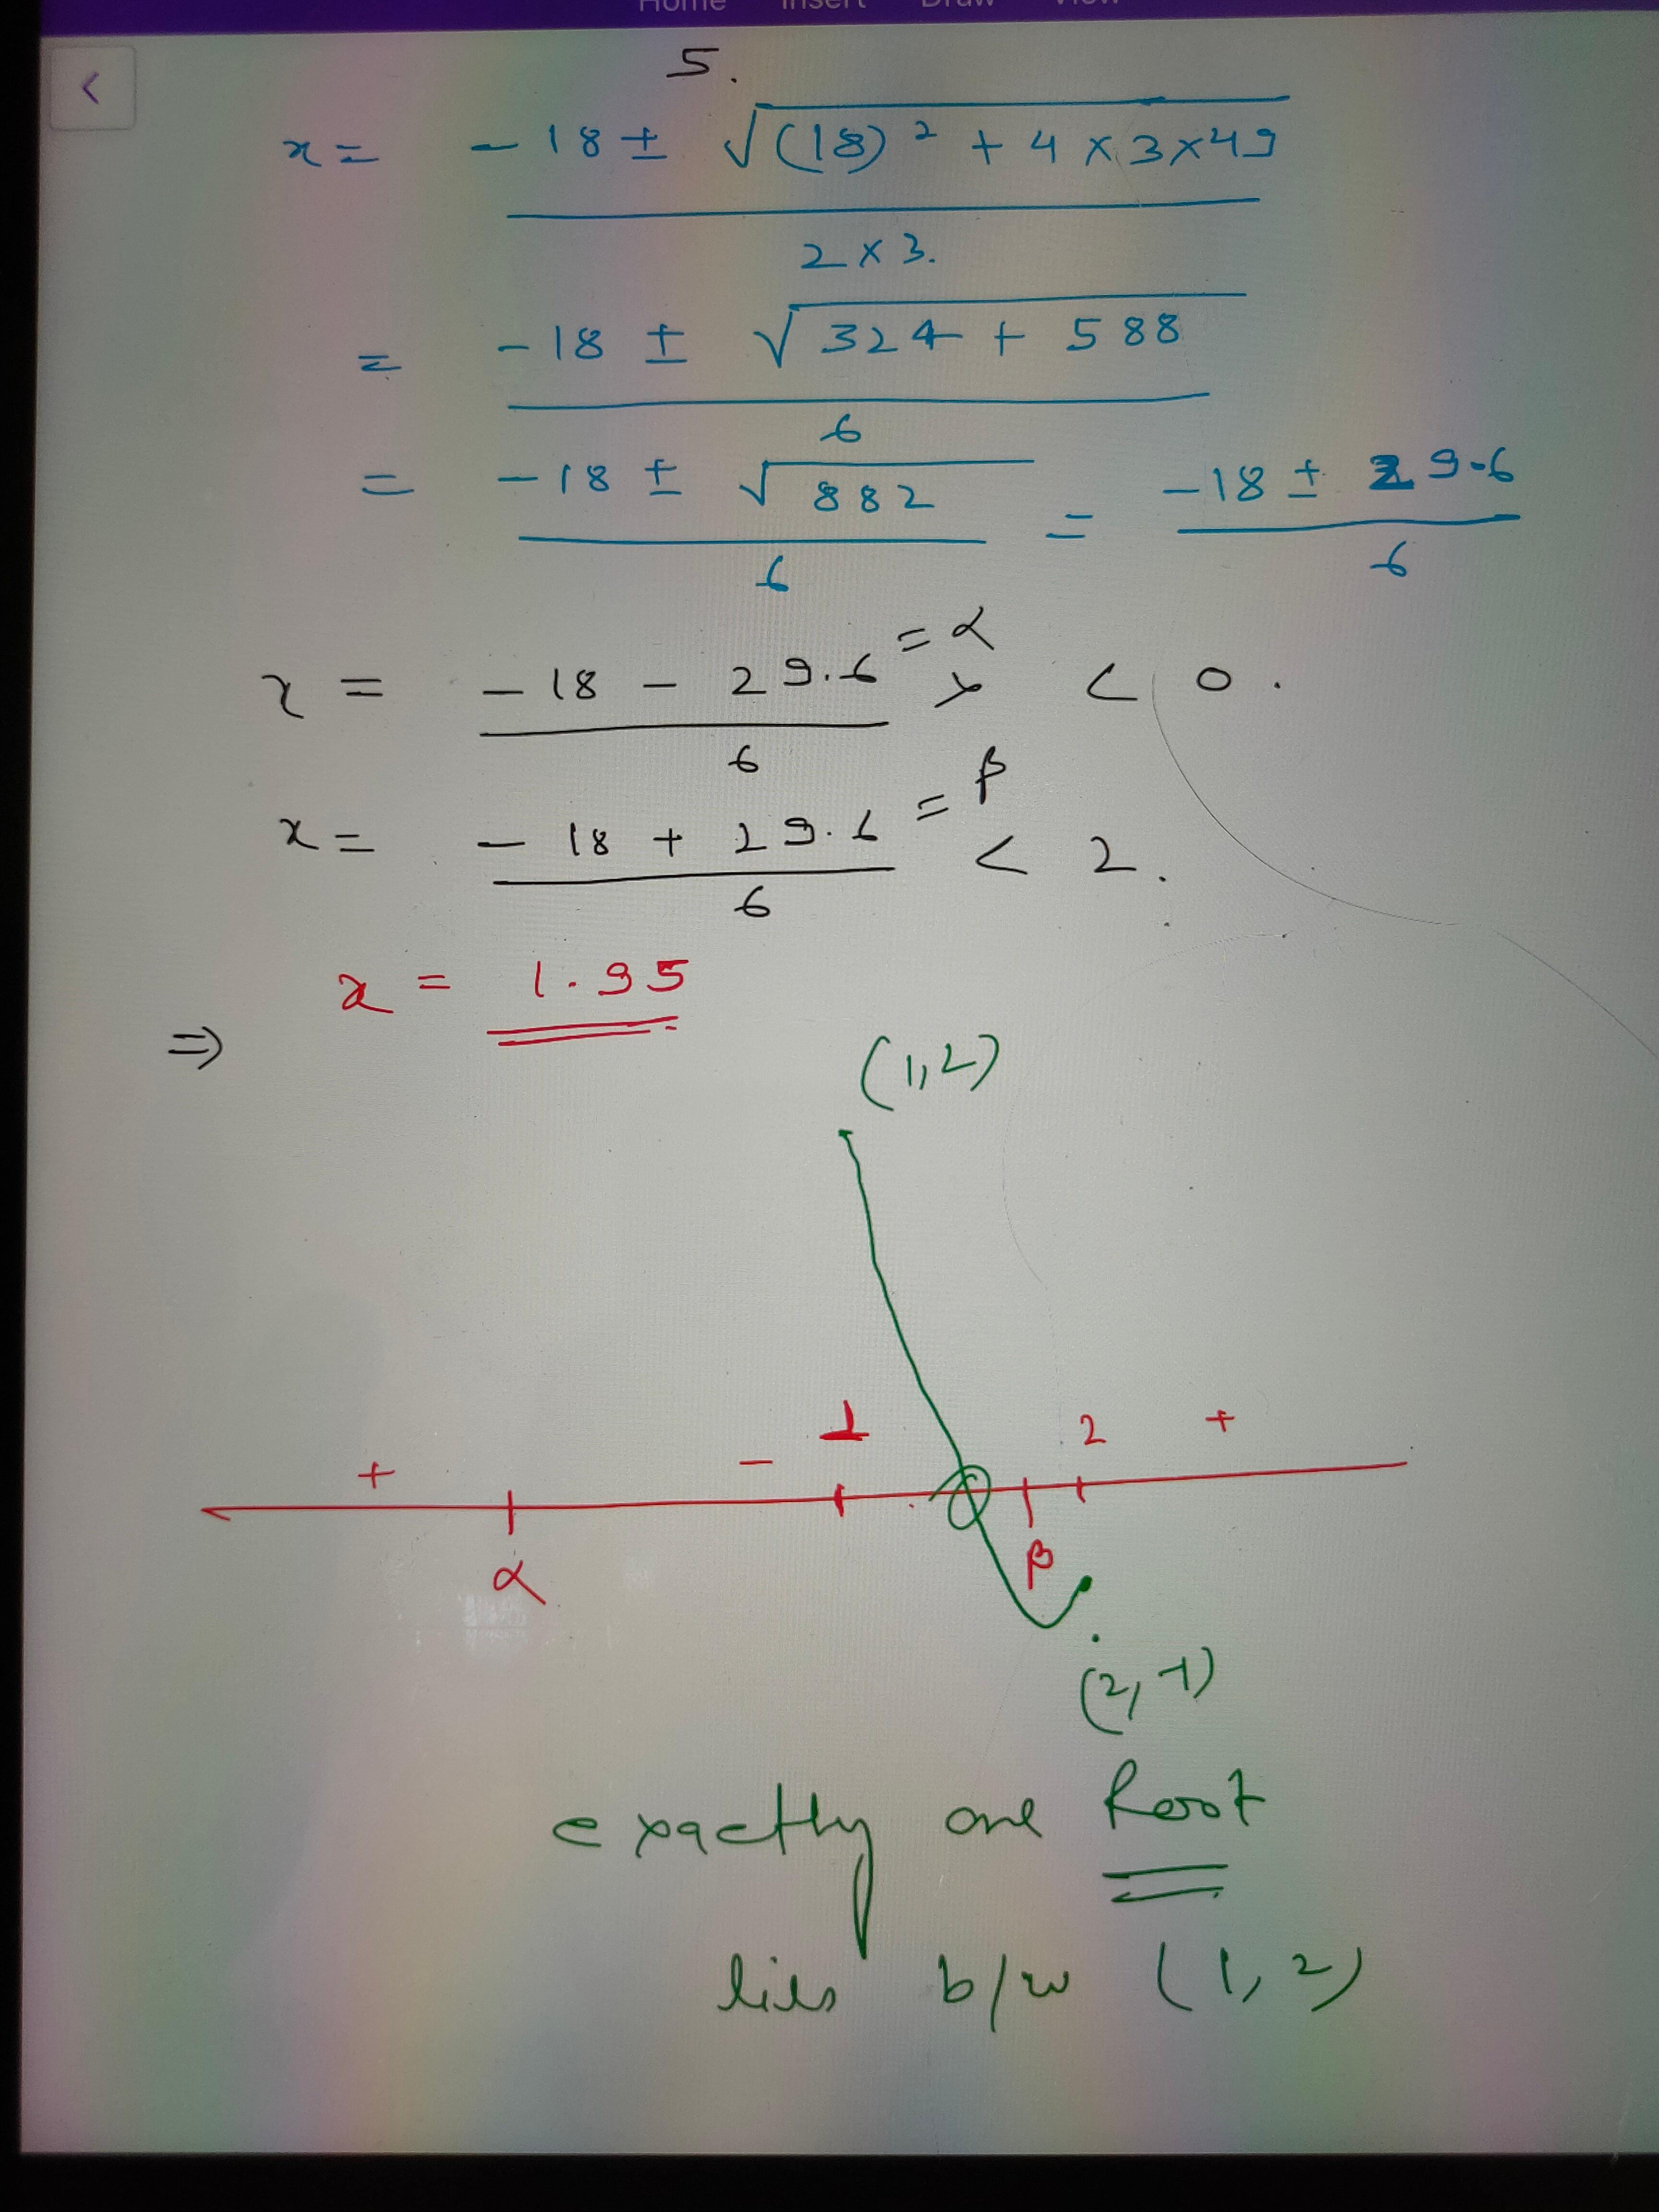 Home Insert Draw View
<
5.
x = - 18 ± √(18)² + 4 × 3 × 49
2 × 3.
= - 18 ± √324 + 588
6
= - 18 ± √882 = - 18 ± 29.6
6 6
x = - 18 - 29.6 = α < 0.
6
x = - 18 + 29.6 = β < 2.
6
x = 1.95
⇒
(1,2)
+ - 1 2 +
α β
(2,-1)
exactly one Root
lies b/w (1,2)